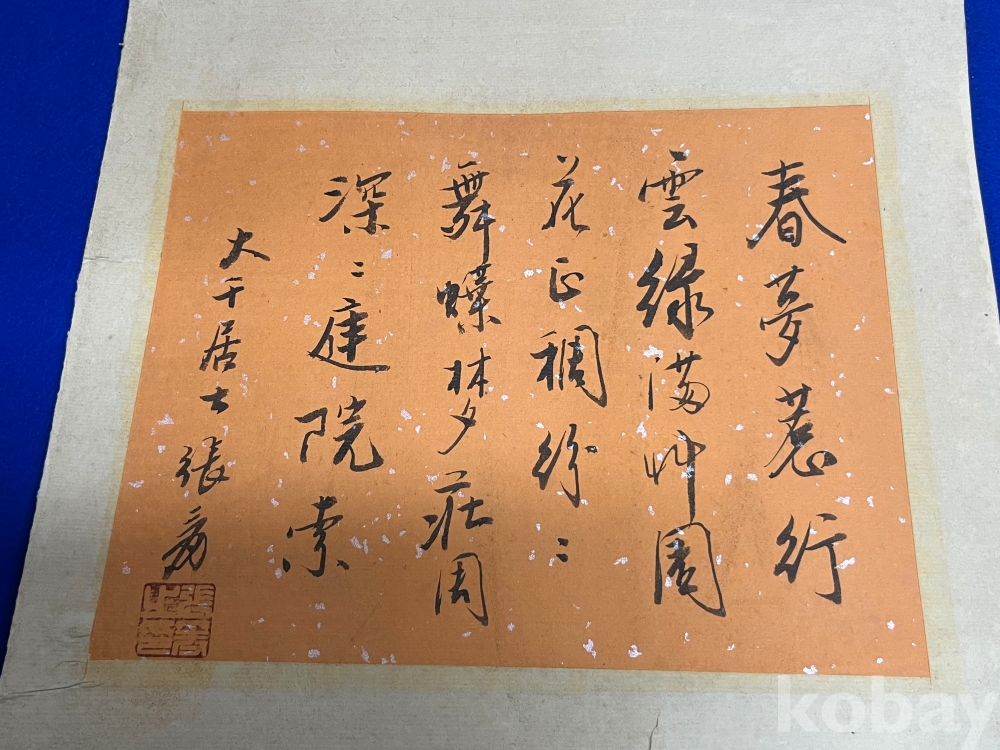 春夢惹行
雲綠滿艸園
花正稠紛〻
舞蝶梦莊周
深〻庭院索
大千居士張爰
張爰之印
kobay